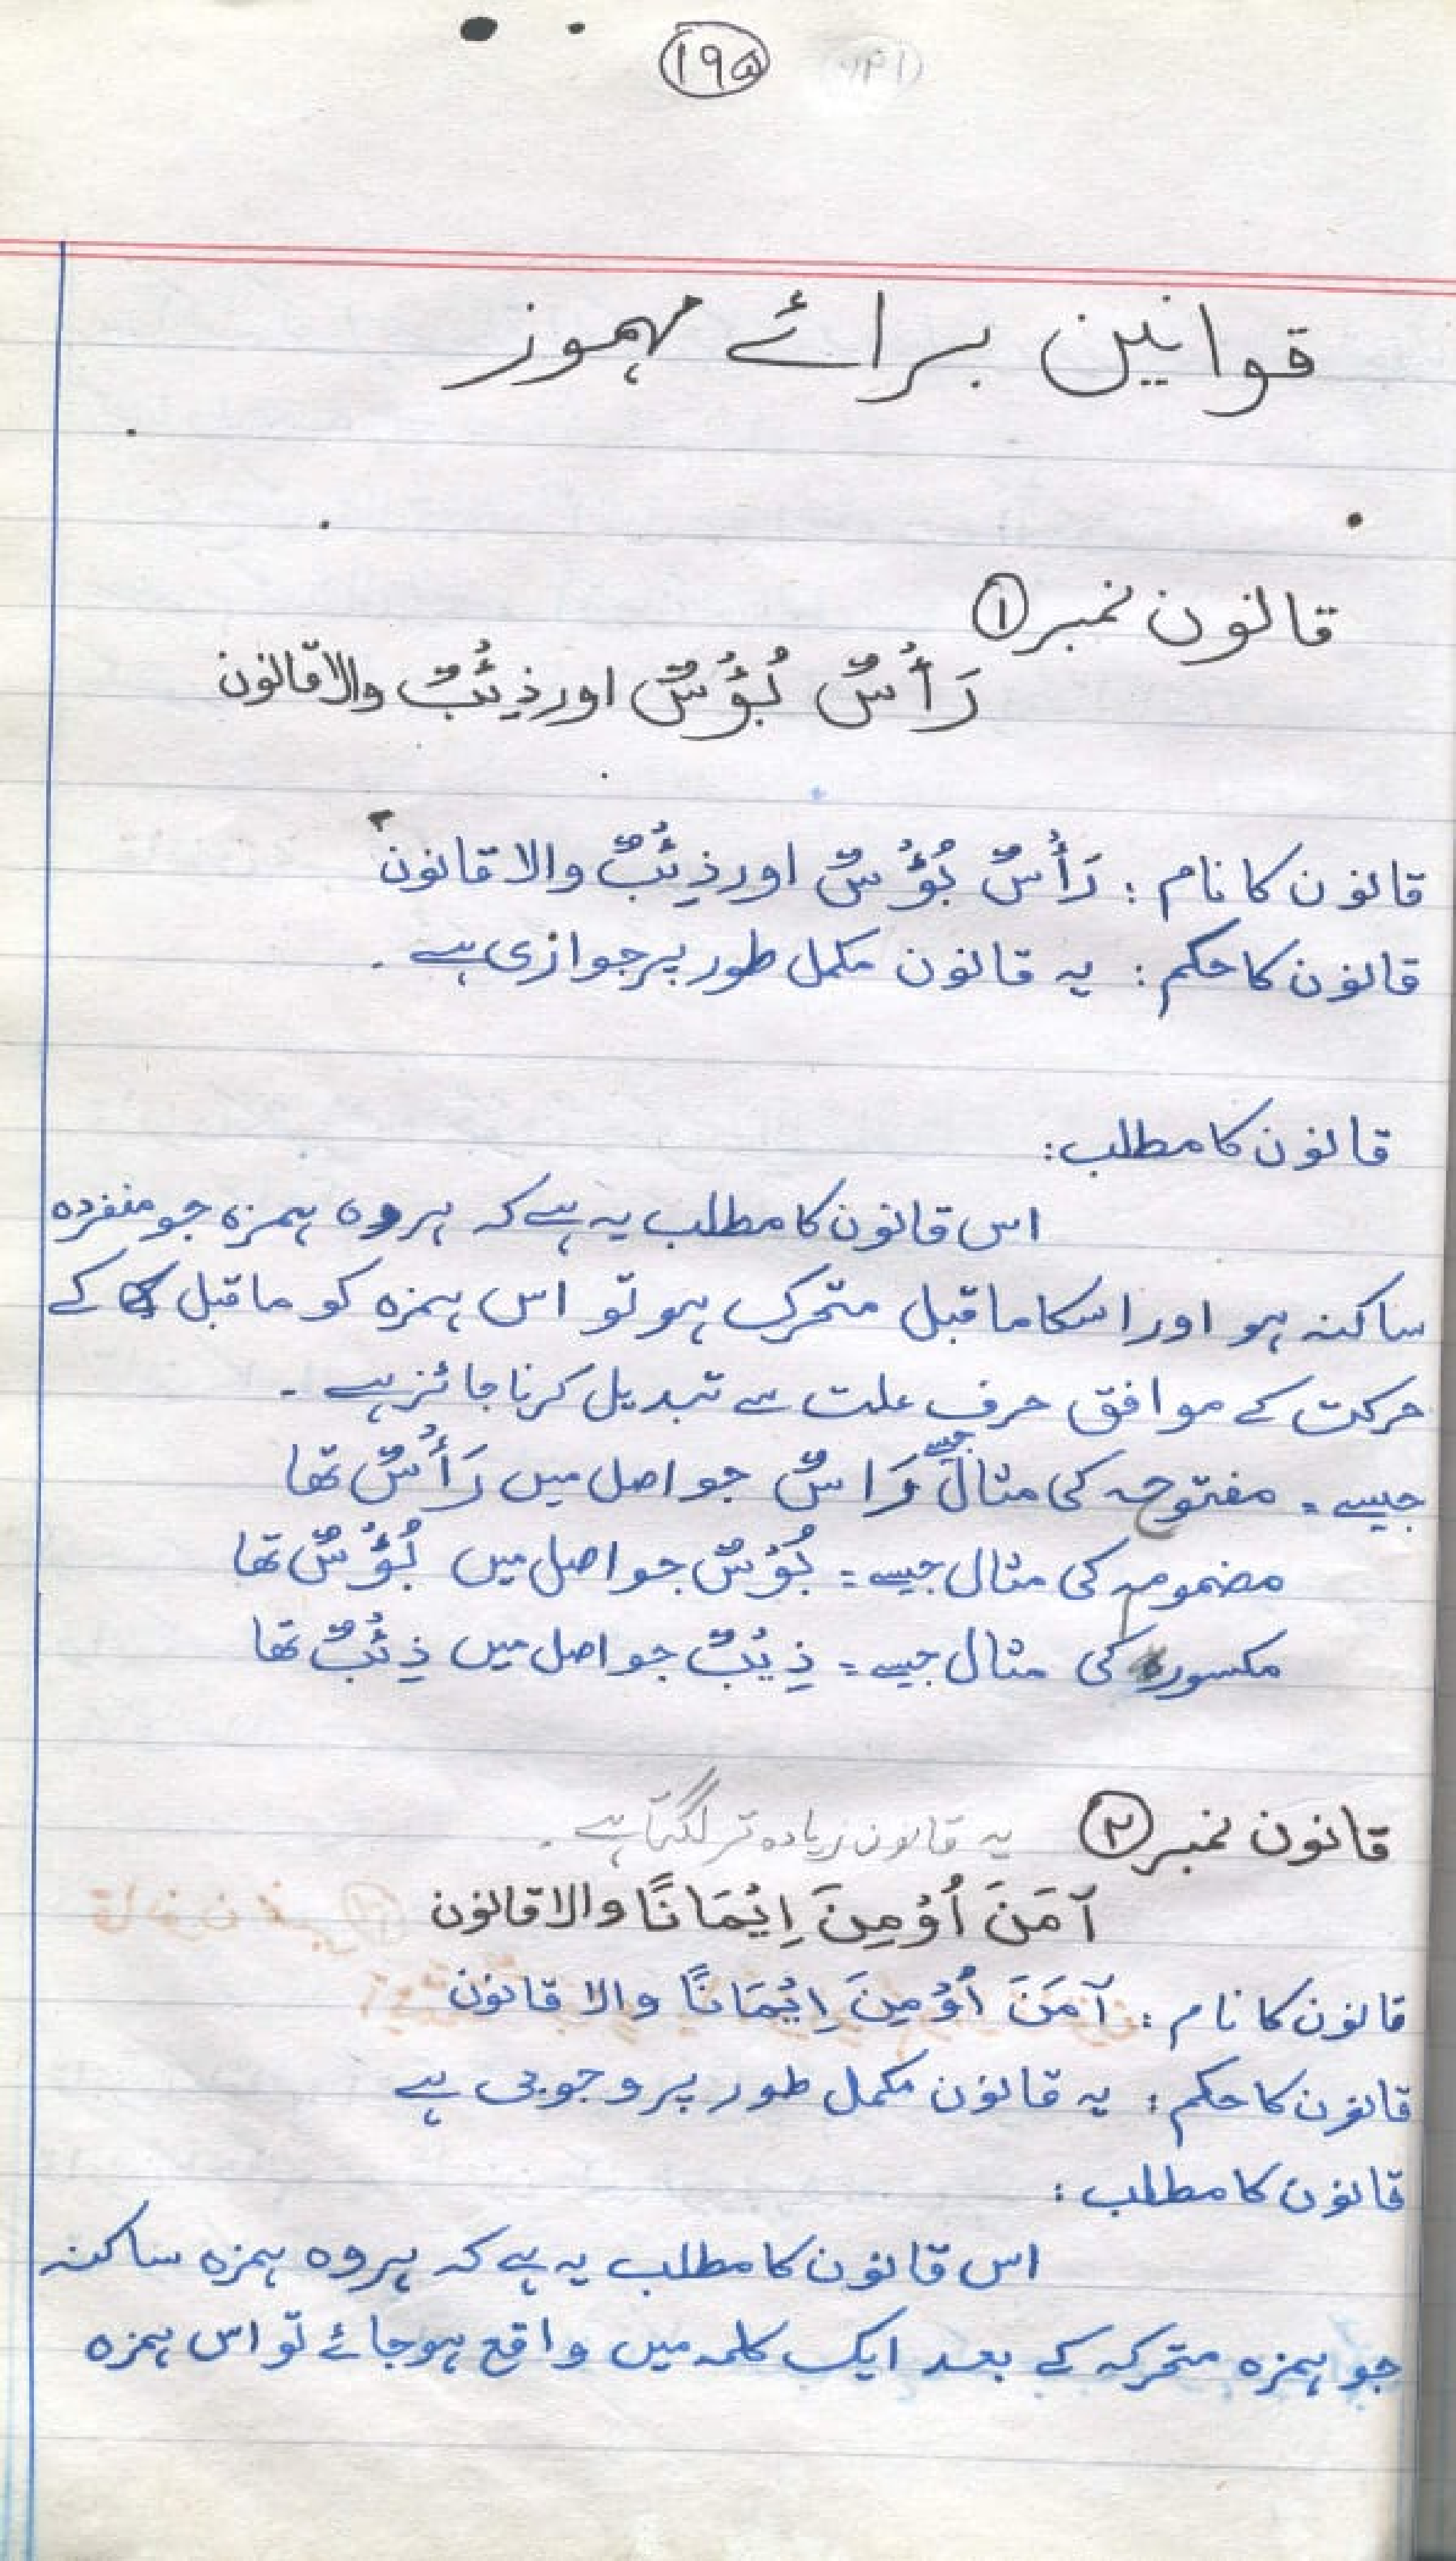 ۱۹۵
قوانین برائے مہموز
قانون نمبر ①
رَأْسٌ بُؤْسٌ اور ذِئْبٌ والا قانون
قانون کا نام : رَأْسٌ بُؤْسٌ اور ذِئْبٌ والا قانون
قانون کا حکم : یہ قانون مکمل طور پر جوازی ہے ۔
قانون کا مطلب :
اس قانون کا مطلب یہ ہے کہ ہر وہ ہمزہ جو منفردہ
ساکنہ ہو اور اسکا ماقبل متحرک ہو تو اس ہمزہ کو ماقبل کے
حرکت کے موافق حرف علت سے تبدیل کرنا جائز ہے ۔
جیسے = مفتوحہ کی مثال جیسے رَاسٌ جو اصل میں رَأْسٌ تھا
مضمومہ کی مثال جیسے = بُوْسٌ جو اصل میں بُؤْسٌ تھا
مکسورہ کی مثال جیسے = ذِیْبٌ جو اصل میں ذِئْبٌ تھا
قانون نمبر ② یہ قانون زیادہ تر لگتا ہے ۔
آمَنَ اُوْمِنَ اِیْمَانًا والا قانون
قانون کا نام : آمَنَ اُوْمِنَ اِیْمَانًا والا قانون
قانون کا حکم : یہ قانون مکمل طور پر وجوبی ہے
قانون کا مطلب :
اس قانون کا مطلب یہ ہے کہ ہر وہ ہمزہ ساکنہ
جو ہمزہ متحرکہ کے بعد ایک کلمہ میں واقع ہوجائے تو اس ہمزہ